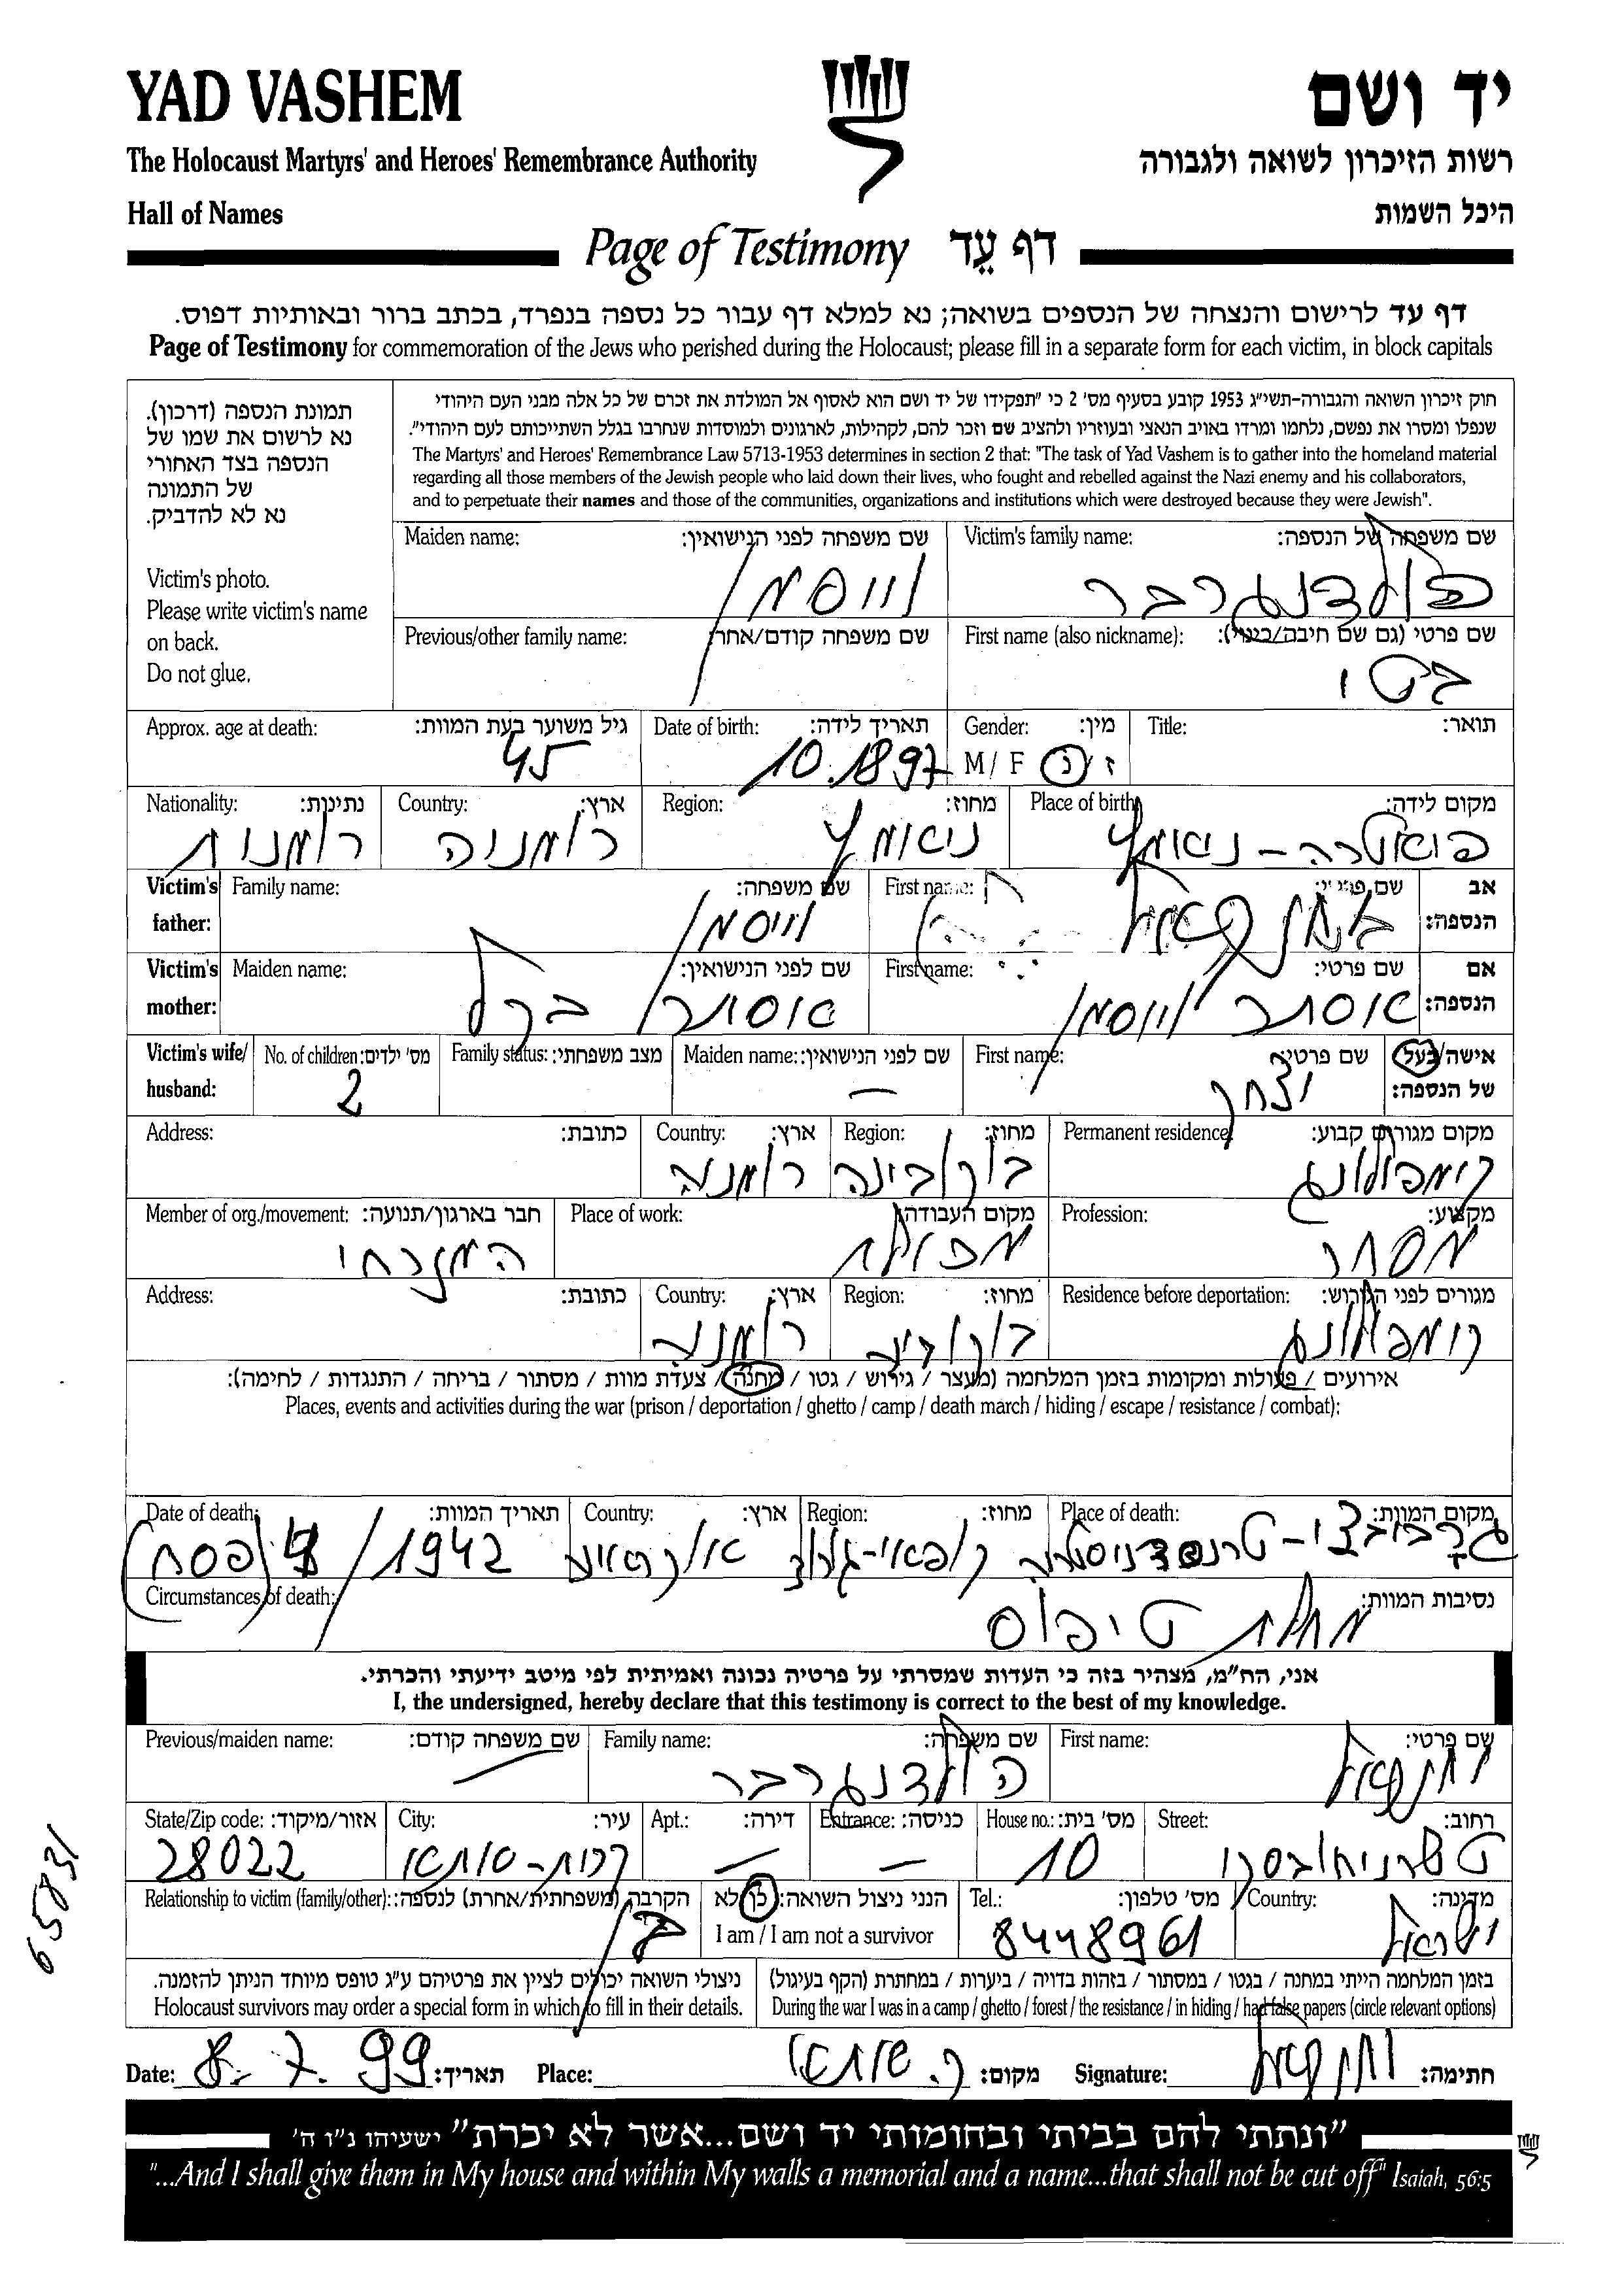 YAD VASHEM
יד ושם
The Holocaust Martyrs' and Heroes' Remembrance Authority
רשות הזיכרון לשואה ולגבורה
Hall of Names
היכל השמות
Page of Testimony דף עֵד
דף עד לרישום והנצחה של הנספים בשואה; נא למלא דף עבור כל נספה בנפרד, בכתב ברור ובאותיות דפוס.
Page of Testimony for commemoration of the Jews who perished during the Holocaust; please fill in a separate form for each victim, in block capitals
תמונת הנספה (דרכון).
נא לרשום את שמו של
הנספה בצד האחורי
של התמונה
נא לא להדביק.
Victim's photo.
Please write victim's name
on back.
Do not glue.
חוק זיכרון השואה והגבורה-תשי"ג 1953 קובע בסעיף מס' 2 כי "תפקידו של יד ושם הוא לאסוף אל המולדת את זכרם של כל אלה מבני העם היהודי
שנפלו ומסרו את נפשם, נלחמו ומרדו באויב הנאצי ובעוזריו ולהציב שם וזכר להם, לקהילות, לארגונים ולמוסדות שנחרבו בגלל השתייכותם לעם היהודי".
The Martyrs' and Heroes' Remembrance Law 5713-1953 determines in section 2 that: "The task of Yad Vashem is to gather into the homeland material
regarding all those members of the Jewish people who laid down their lives, who fought and rebelled against the Nazi enemy and his collaborators,
and to perpetuate their names and those of the communities, organizations and institutions which were destroyed because they were Jewish".
Victim's family name: שם משפחה של הנספה:
Maiden name: שם משפחה לפני הנישואין:
וויסמן
First name (also nickname): שם פרטי (גם שם חיבה/כינוי):
בטי
Previous/other family name: שם משפחה קודם/אחר:
Title: תואר:
Gender: מין:
M / F ז / נ
Date of birth: תאריך לידה:
10.1897
Approx. age at death: גיל משוער בעת המוות:
45
Place of birth: מקום לידה:
פיאטרה - ניאמץ
Region: מחוז:
ניאמץ
Country: ארץ:
רומניה
Nationality: נתינות:
רומנית
Victim's father: אב הנספה:
First name: שם פרטי:
Family name: שם משפחה:
וויסמן
Victim's mother: אם הנספה:
First name: שם פרטי:
אסתר וויסמן
Maiden name: שם לפני הנישואין:
אסתר
Victim's wife/ husband: אישה/בעל של הנספה:
First name: שם פרטי:
יצחק
Maiden name: שם לפני הנישואין:
—
Family status: מצב משפחתי:
No. of children: מס' ילדים:
2
Permanent residence: מקום מגורים קבוע:
קימפולונג
Region: מחוז:
בוקובינה
Country: ארץ:
רומניה
Address: כתובת:
Profession: מקצוע:
מסחר
Place of work: מקום העבודה:
מכולת
Member of org./movement: חבר בארגון/תנועה:
המזרחי
Residence before deportation: מגורים לפני הגירוש:
קימפולונג
Region: מחוז:
Country: ארץ:
רומניה
Address: כתובת:
אירועים / פעולות ומקומות בזמן המלחמה (מעצר / גירוש / גטו / מחנה / צעדת מוות / מסתור / בריחה / התנגדות / לחימה):
Places, events and activities during the war (prison / deportation / ghetto / camp / death march / hiding / escape / resistance / combat):
Place of death: מקום המוות:
טרנסדניסטריה
Region: מחוז:
Country: ארץ:
אוקראינה
Date of death: תאריך המוות:
1942
Circumstances of death: נסיבות המוות:
מחלת טיפוס
אני, הח"מ, מצהיר בזה כי העדות שמסרתי על פרטיה נכונה ואמיתית לפי מיטב ידיעתי והכרתי.
I, the undersigned, hereby declare that this testimony is correct to the best of my knowledge.
First name: שם פרטי:
יחזקאל
Family name: שם משפחה:
Previous/maiden name: שם משפחה קודם:
Street: רחוב:
טשרניחובסקי
House no.: מס' בית:
10
Entrance: כניסה:
—
Apt.: דירה:
—
City: עיר:
קרית-אתא
State/Zip code: אזור/מיקוד:
28022
Country: מדינה:
ישראל
Tel.: מס' טלפון:
8448961
הנני ניצול השואה: כן / לא
I am / I am not a survivor
Relationship to victim (family/other): הקרבה (משפחתית/אחרת) לנספה:
בן
בזמן המלחמה הייתי במחנה / בגטו / במסתור / בזהות בדויה / ביערות / במחתרת (הקף בעיגול)
During the war I was in a camp / ghetto / forest / the resistance / in hiding / had false papers (circle relevant options)
ניצולי השואה יכולים לציין את פרטיהם ע"ג טופס מיוחד הניתן להזמנה.
Holocaust survivors may order a special form in which to fill in their details.
Date: 8.7.99 תאריך: Place: מקום: Signature: יחזקאל חתימה:
65831
"ונתתי להם בביתי ובחומותי יד ושם...אשר לא יכרת" ישעיהו נ"ו ה'
"...And I shall give them in My house and within My walls a memorial and a name...that shall not be cut off" Isaiah, 56:5